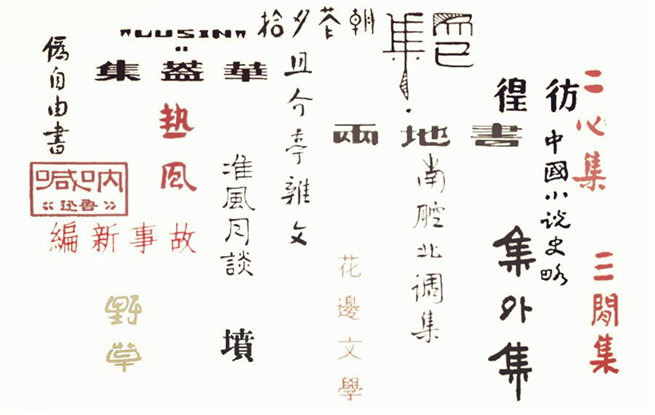 二心集
三閒集
彷徨
中國小说史略
集外集
而已集
兩地書
南腔北调集
花邊文學
朝花夕拾
且介亭雜文
"LUSIN"
華蓋集
准風月談
墳
熱風
僞自由書
呐喊
魯迅
故事新編
野草